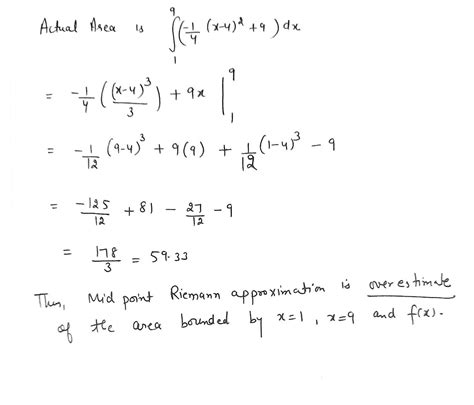 Actual Area is ∫₁⁹ (-1/4 (x-4)² + 9) dx
= -1/4 ((x-4)³/3) + 9x |₁⁹
= -1/12 (9-4)³ + 9(9) + 1/12 (1-4)³ - 9
= -125/12 + 81 - 27/12 - 9
= 178/3 = 59.33
Thus, Mid point Riemann approximation is overestimate
of the area bounded by x=1, x=9 and f(x).